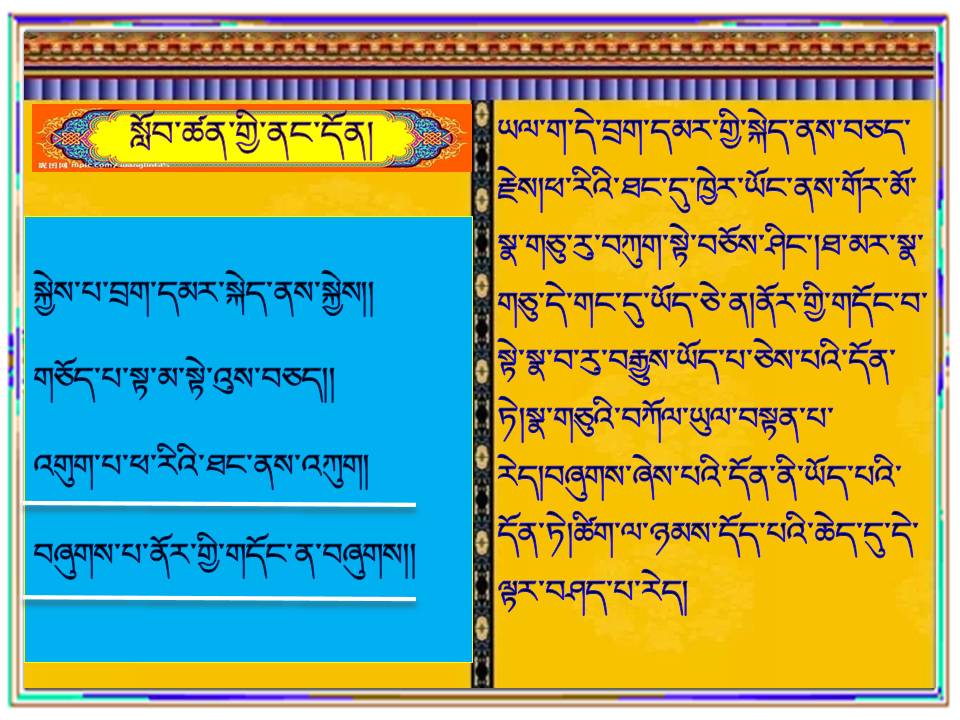 སློབ་ཚན་གྱི་ནང་དོན།
སྐྱེས་པ་བྲག་དམར་སྐེད་ནས་སྐྱེས།།
གཅོད་པ་སྟ་མ་སྟེ་འུས་བཅད།།
འགུག་པ་ཕ་རིའི་ཐང་ནས་འཀུག།
བཞུགས་པ་ནོར་གྱི་གདོང་ན་བཞུགས།།
ཡལ་ག་དེ་བྲག་དམར་གྱི་སྐེད་ནས་བཅད་
རྗེས།ཕ་རིའི་ཐང་དུ་ཁྱེར་ཡོང་ནས་གོར་མོ་
སྣ་གཅུ་རུ་བཀུག་སྟེ་བཅོས་ཤིང་།ཐ་མར་སྣ་
གཅུ་དེ་གང་དུ་ཡོད་ཅེ་ན།ནོར་གྱི་གདོང་བ་
སྟེ་སྣ་བ་རུ་བརྒྱུས་ཡོད་པ་ཅེས་པའི་དོན་
ཏེ།སྣ་གཅུའི་བཀོལ་ཡུལ་བསྟན་པ་
རེད།བཞུགས་ཞེས་པའི་དོན་ནི་ཡོད་པའི་
དོན་ཏེ།ཚིག་ལ་ཉམས་དོད་པའི་ཆེད་དུ་དེ་
ལྟར་བཤད་པ་རེད།